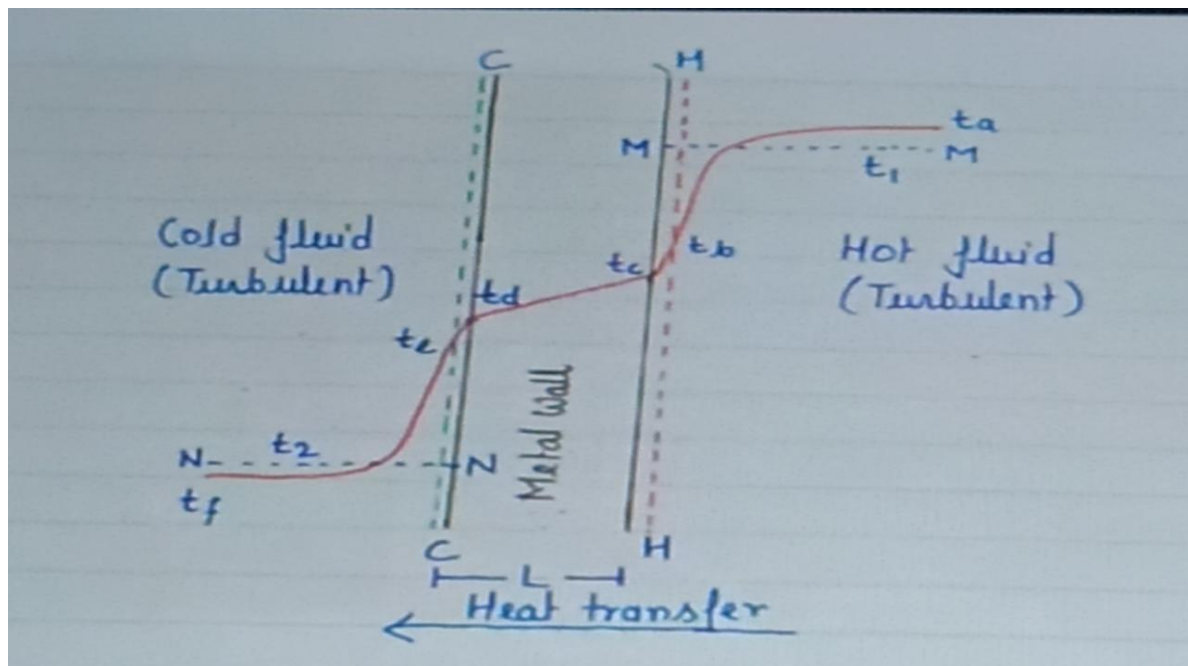 C
H
ta
M
M
t1
Cold fluid
(Turbulent)
tc
tb
Hot fluid
(Turbulent)
td
te
Metal Wall
N
t2
N
tf
C
H
L
Heat transfer